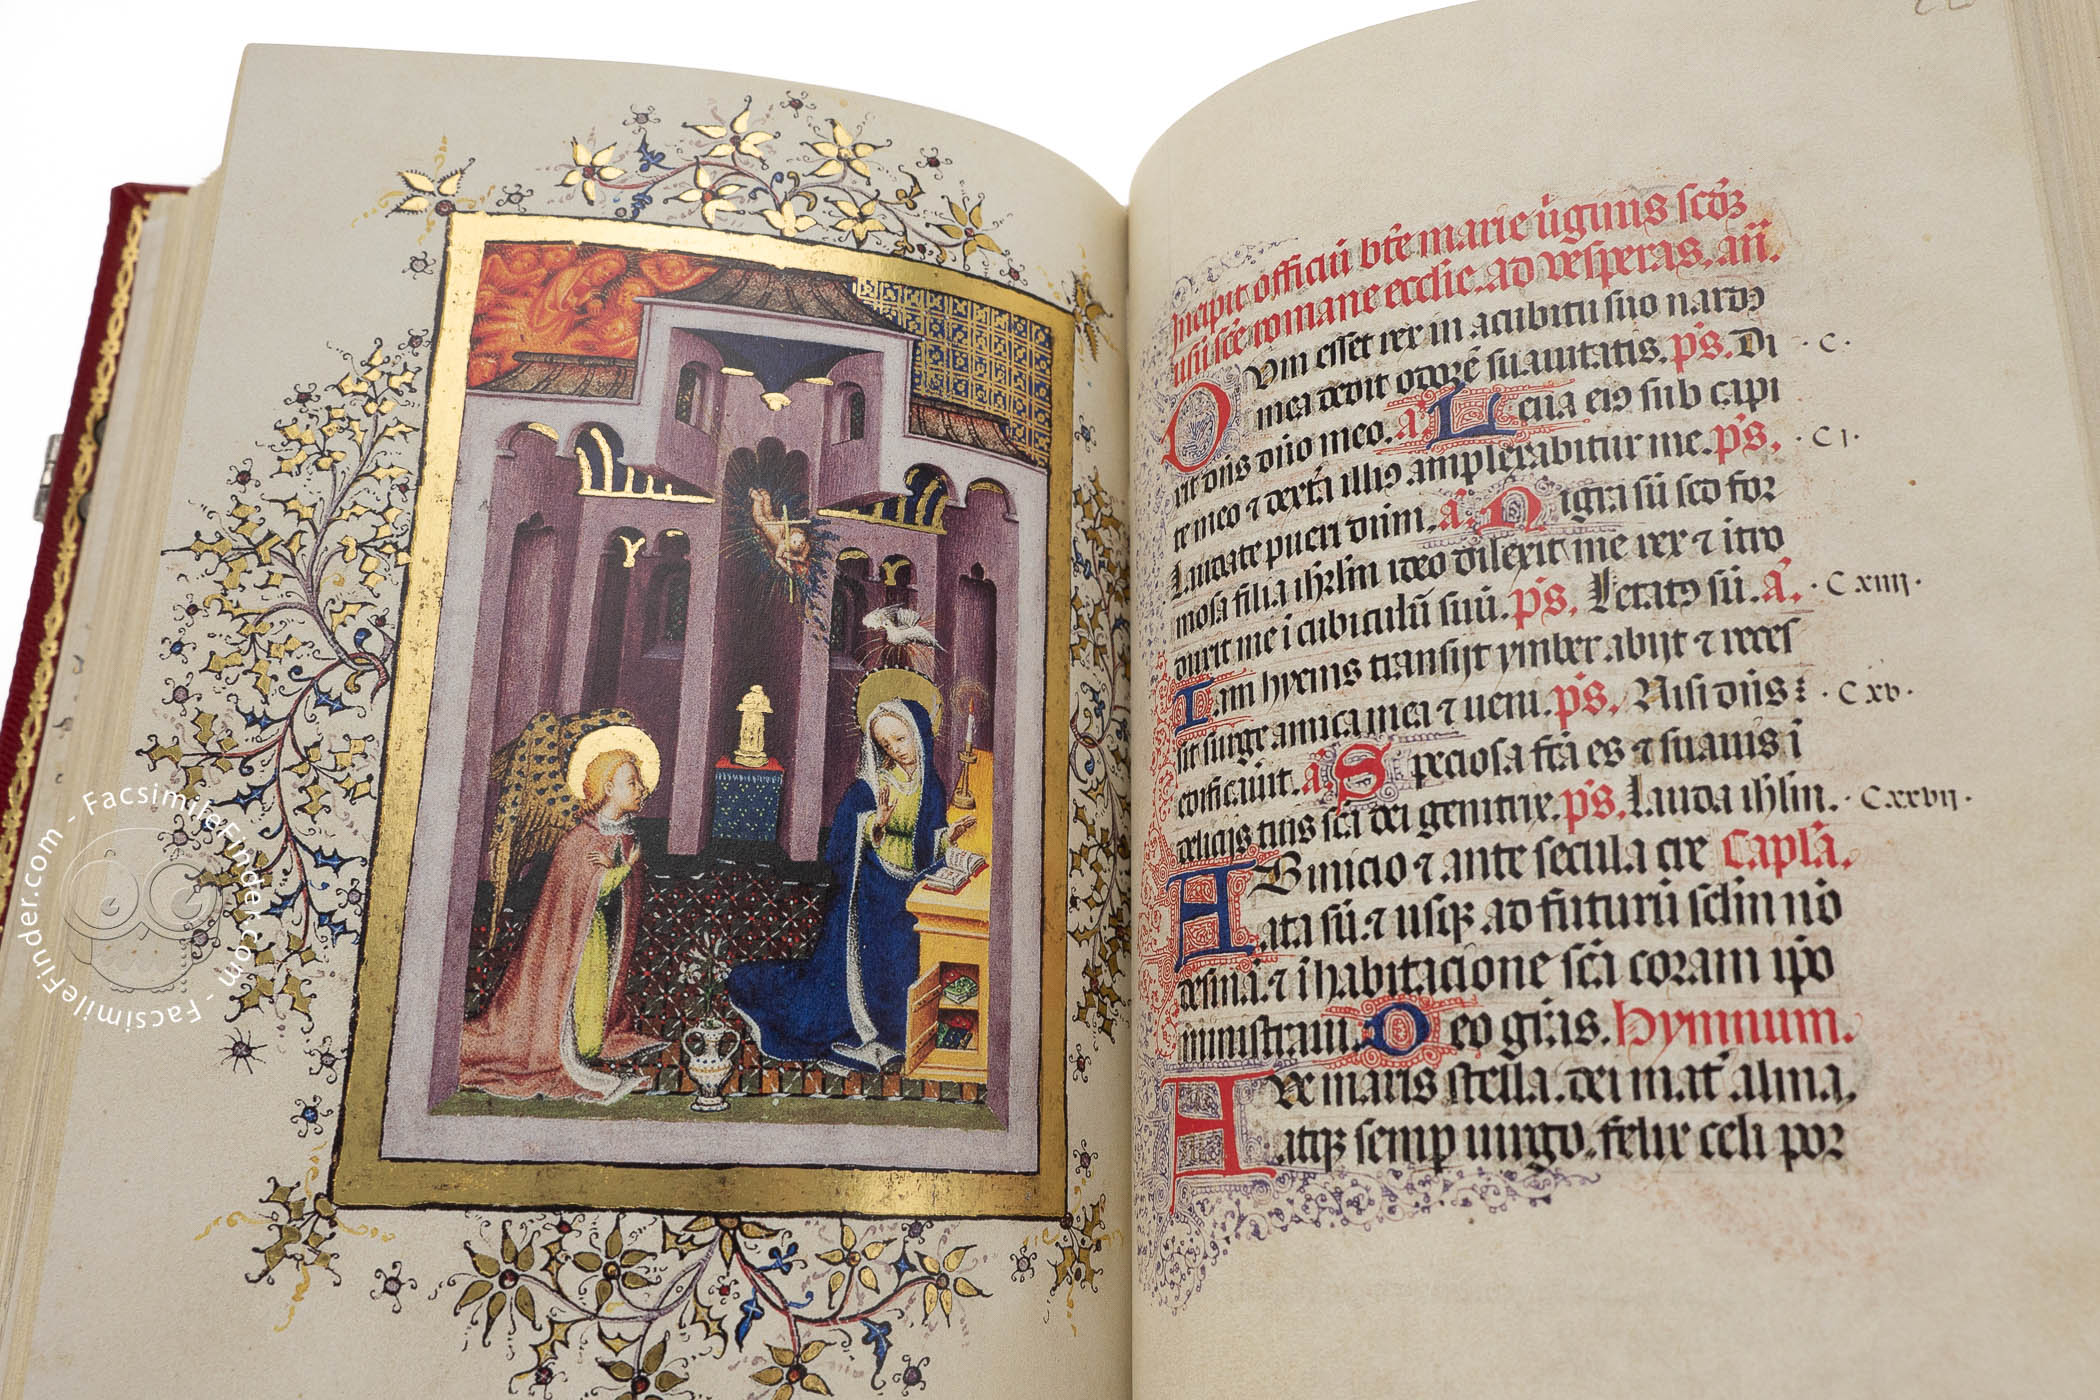 FacsimileFinder.com - FacsimileFinder.com - FacsimileFinder.com
Incipit officiū bt̄e marie ūginis scd̄ȝ
usū sc̄e romane ecclīe. ad vesperas. an̄.
Dvm esset rex in acubitu suo nardꝰ
mea dedit odorē suauitatis. ps̄. Di · C ·
xit dn̄s dn̄o meo. a᷒ Leua eiꝰ sub capi
te meo ⁊ dext̄a illiꝰ amplexabitur me. ps̄. · C I ·
Laudate pueri dnim. a᷒. Nigra sū sed for
mosa filia ihr̄lm ideo dilexit me rex ⁊ itro
duxit me i cubiculū suū. ps̄. Letatꝰ sū. a᷒. · C xiiij ·
Iam hyems transijt ymber abijt ⁊ reces
sit surge amica mea ⁊ ueni. ps̄. Nisi dn̄s · C xv ·
edificauit. a᷒ Speciosa fc̄a es ⁊ suauis i
delicijs tuis sc̄a dei genitrix. ps̄. Lauda ihr̄lm. · C xxvij ·
AB inicio ⁊ ante secula cre Capl̄a.
ata sū. ⁊ usqꝫ ad futurū sclm nō
desinā. ⁊ ī habitacione sc̄a coram ip̄o
ministraui. Deo gr̄as. hymnum.
AVe maris stella. dei mat̄ alma.
atqꝫ semp uirgo. felix celi por